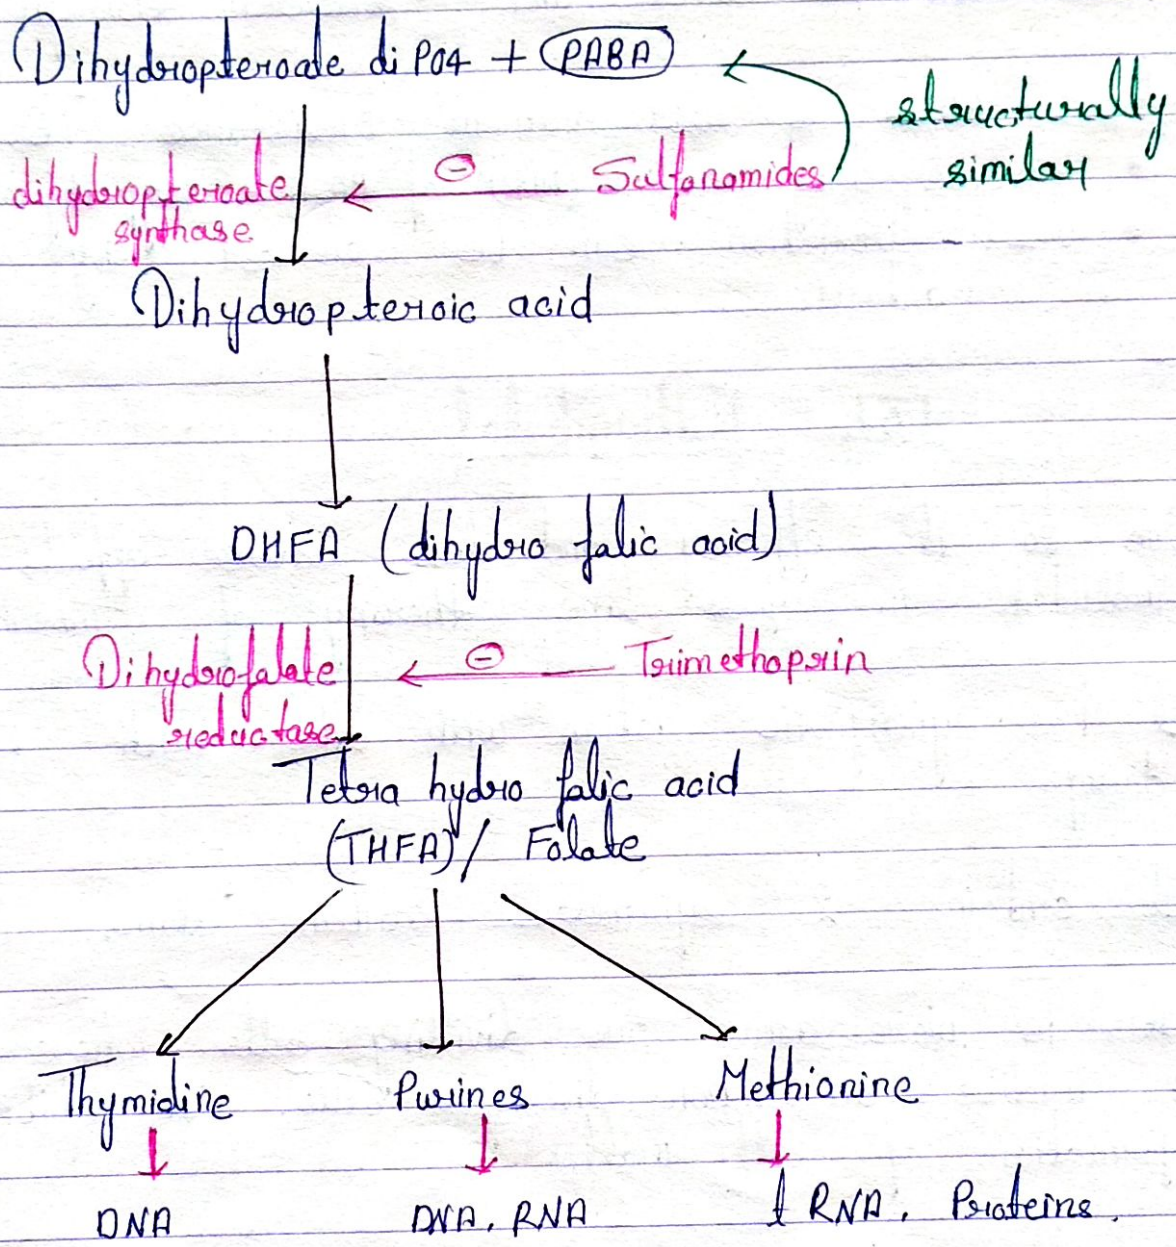 Dihydropteroate di PO4 + PABA
structurally
similar
dihydropteroate
synthase
⊖
Sulfonamides
Dihydropteroic acid
DHFA (dihydro folic acid)
Dihydrofolate
reductase
⊖
Trimethoprin
Tetra hydro folic acid
(THFA) / Folate
Thymidine Purines Methionine
DNA DNA, RNA t RNA, Proteins,